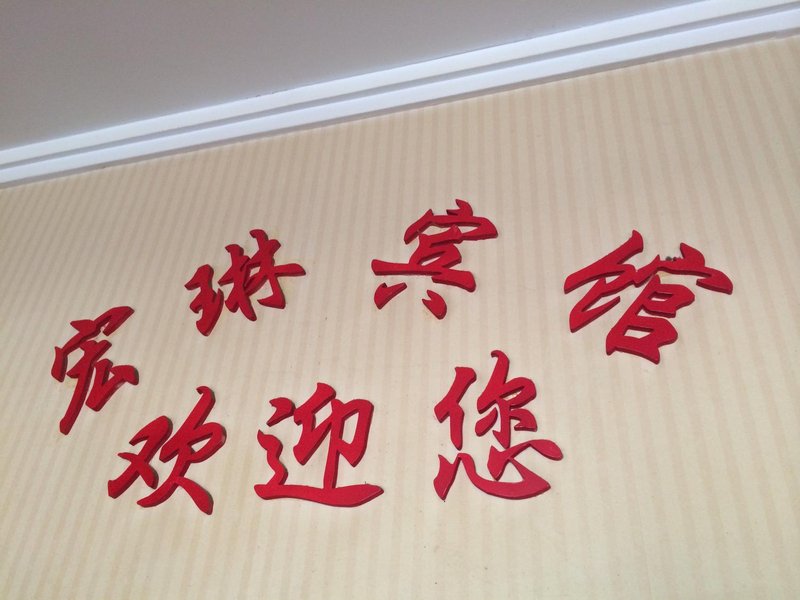 宏琳宾馆
欢迎您